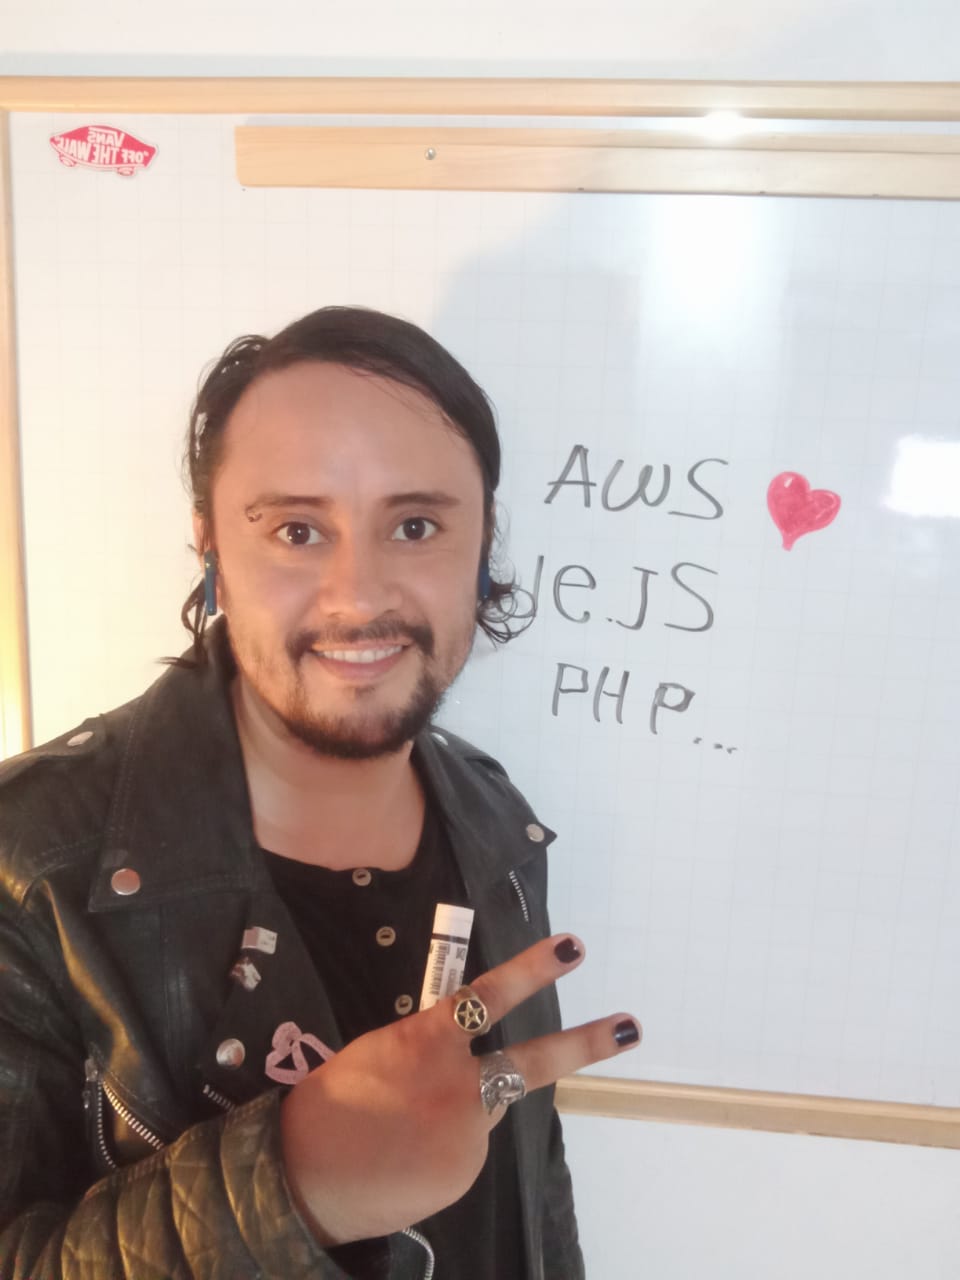 VANS
"OFF THE WALL"
AWS
de.JS
PHP...